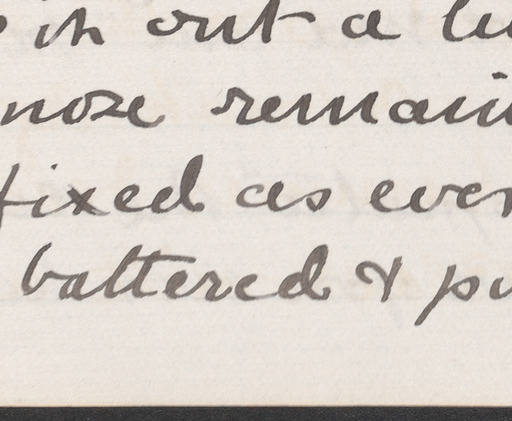 it out a
nose remain
fixed as ever
battered & pu